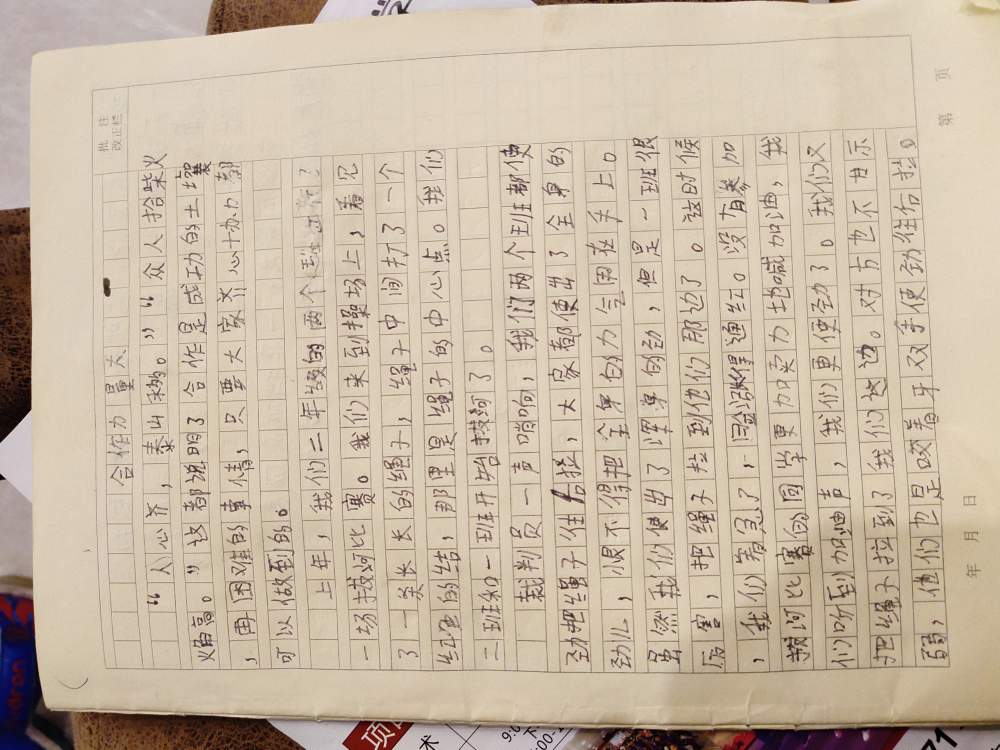 批注
改正栏
合作力量大
“人心齐，泰山移。”“众人拾柴火
焰高。”这都说明了合作是成功的土壤
，再困难的事情，只要大家齐心协力都
可以做到的。
上年，我们二年级的两个班
一场拔河比赛。我们来到操场上，看见
了一条长长的绳子，绳子中间打了一个
红色的结，那里是绳子的中心点。我们
二班和一班开始拔河了。
裁判员一声哨响，我们两个班都使
劲把绳子往后拉，大家都使出了全身的
劲儿，恨不得把全身的力全用在手上。
虽然我们使出了浑身的劲，但是一班很
厉害，把绳子拉到他们那边了。这时候
，我们着急了，脸涨得通红。没有参加
拔河比赛的同学更加卖力地喊加油，我
们听到加油声，我们更使劲了。我们又
把绳子拉到了我们这边。对方也不甘示
弱，他们也是咬着牙双手使劲往后拉。
年 月 日
第 页
项
术
9:0
下
00-
71